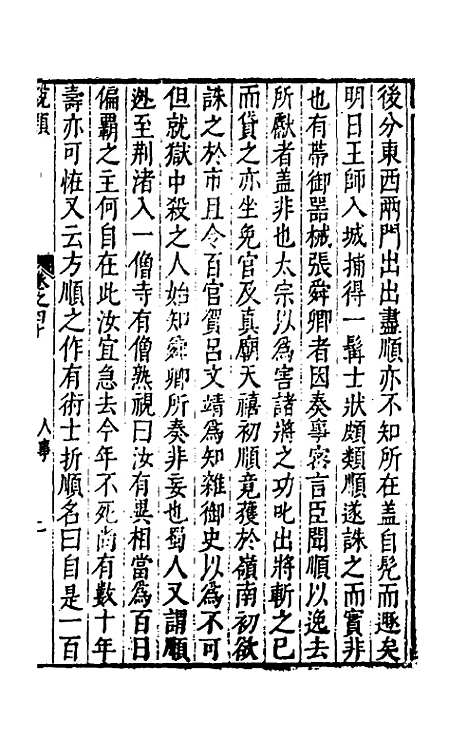 後分東西兩門出出盡順亦不知所在盖自髠而遯矣
明日王師入城捕得一髯士狀頗類順遂誅之而實非
也有帶御器械張舜卿者因奏事密言臣聞順以逸去
所獻者盖非也太宗以爲害諸將之功叱出將斬之已
而貸之亦坐免官及真廟天禧初順竟獲於嶺南初欲
誅之於市且令百官賀呂文靖爲知雜御史以爲不可
但就獄中殺之人始知舜卿所奏非妄也蜀人又謂順
逃至荆渚入一僧寺有僧熟視曰汝有異相當爲百日
偏霸之主何自在此汝宜急去今年不死尚有數十年
壽亦可恠又云方順之作有術士折順名曰自是一百
說類
卷之四十
人事